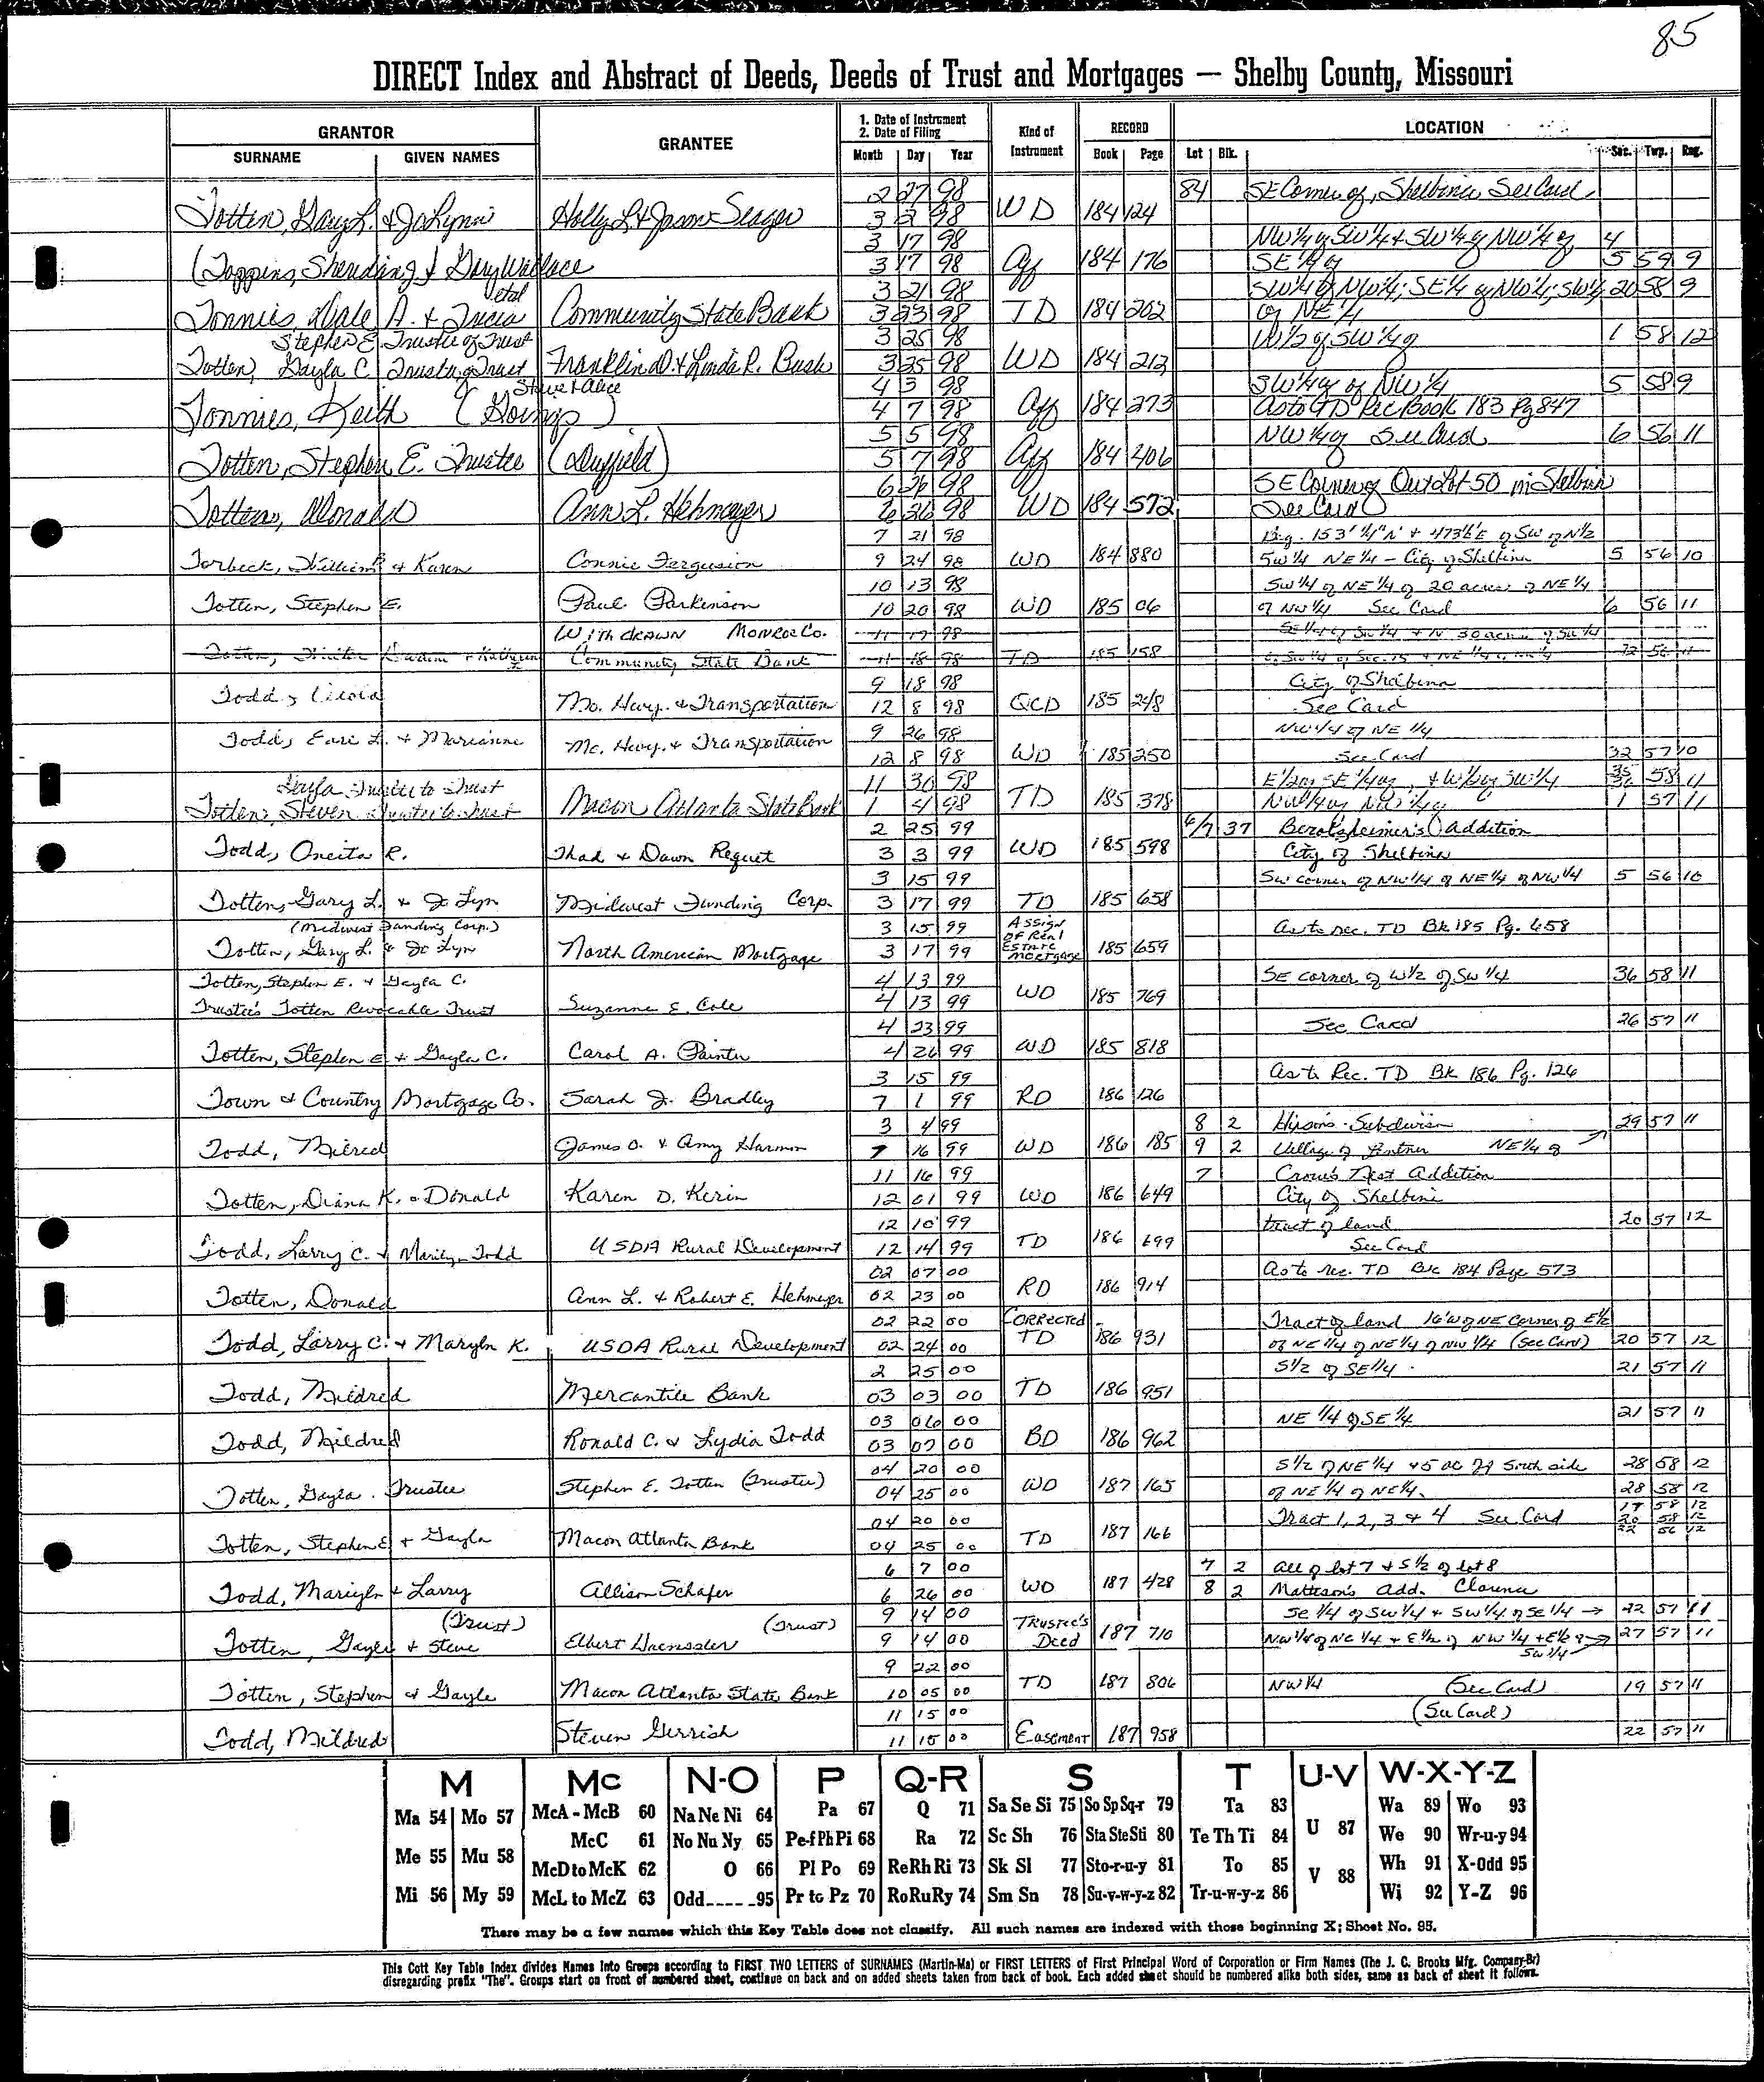 85
DIRECT Index and Abstract of Deeds, Deeds of Trust and Mortgages — Shelby County, Missouri
GRANTOR GRANTEE 1. Date of Instrument 2. Date of Filing Kind of Instrument RECORD LOCATION
SURNAME GIVEN NAMES Month Day Year Book Page Lot Blk. Sec. Twp. Rng.
2 27 98 84 SE Corner of Shelbina See Card
Totten, Gary L. & JoLynn Holly L & Seager 3 2 98 WD 184 124
3 17 98 NW 1/4 of SW 1/4 & SW 1/4 of NW 1/4 of 4
(Toppins, Gary Wallace 3 17 98 Aff 184 176 SE 1/4 of 5 59 9
etal 3 21 98 SW 1/4 of NW 1/4; SE 1/4 of NW 1/4; SW 1/4 20 58 9
Tonnies, Dale A. & Tricia Community State Bank 3 23 98 TD 184 202 of NE 1/4
Stephen E Trustee of Trust 3 25 98 W 1/2 of SW 1/4 of 1 58 12
Totten, Gayla C Trustee of Trust Franklin D. & Linda R. Bush 3 25 98 WD 184 212
Steve & Alice 4 3 98 SW 1/4 of NW 1/4 5 58 9
Tonnies, Keith (Goings) 4 7 98 Aff 184 273 As to TD Rec Book 183 Pg 847
5 5 98 NW 1/4 of See Card 6 56 11
Totten, Stephen E. Trustee (Duffield) 5 7 98 Aff 184 406
6 26 98 SE Corner of Out Lot 50 in Shelbina
Totten, Donald Ann L. Hehmeyer 6 26 98 WD 184 572 See Card
7 21 98 Beg. 153' 1/4" N & 473 E of SW of N 1/2
Torbeck, William & Karen Connie Ferguson 9 24 98 WD 184 880 SW 1/4 NE 1/4 - City of Shelbina 5 56 10
10 13 98 SW 1/4 of NE 1/4 of 20 acres of NE 1/4
Totten, Stephen E. Paul Parkinson 10 20 98 WD 185 06 of NW 1/4 See Card 6 56 11
WithDRAWN Monroe Co. 11 17 98 SE 1/4 of SW 1/4 & N 30 acres of SW 1/4
Totten, & Kathryn Community State Bank 11 18 98 TD 185 158
9 18 98 City of Shelbina
Todd, Mo. Hwy. & Transportation 12 8 98 QCD 185 248 See Card
9 26 98 NW 1/4 of NE 1/4
Todd, Earl L. & Marianne Mo. Hwy. & Transportation 12 8 98 WD 185 250 See Card 32 57 10
Gayla Trustee to Trust 11 30 98 E 1/2 of SE 1/4 of & W 1/2 of SW 1/4 35 36 58 11
Totten, Steven Trustee to Trust Macon Atlanta State Bank 1 4 98 TD 185 378 NW 1/4 of NW 1/4 of 1 57 11
2 25 99 6/7 37 Addition
Todd, Oneita R. Thad & Dawn Requet 3 3 99 WD 185 598 City of Shelbina
3 15 99 SW corner of NW 1/4 of NE 1/4 of NW 1/4 5 56 10
Totten, Gary L. & Jo Lyn Midwest Funding Corp. 3 17 99 TD 185 658
(Midwest Funding Corp.) 3 15 99 Assign of Real Estate Mortgage As to rec. TD Bk 185 Pg. 658
Totten, Gary L. & Jo Lyn North American Mortgage 3 17 99 185 659
Totten, Stephen E. & Gayla C. 4 13 99 SE corner of W 1/2 of SW 1/4 36 58 11
Trustee's Totten Revocable Trust Suzanne E. Cole 4 13 99 WD 185 769
4 23 99 See Card 26 57 11
Totten, Stephen E. & Gayla C. Carol A. Painter 4 26 99 WD 185 818
3 15 99 As to Rec. TD Bk 186 Pg. 126
Town & Country Mortgage Co. Sarah J. Bradley 7 1 99 RD 186 126
3 4 99 8 2 Subdivision 29 57 11
Todd, Milred James O. & Amy Harmon 7 16 99 WD 186 185 9 2 Village of Lentner NE 1/4 of
11 16 99 7 Crow's Nest Addition
Totten, Diana K. & Donald Karen D. Kerin 12 01 99 WD 186 649 City of Shelbina
12 10 99 tract of land 20 57 12
Todd, Larry C. & Marilyn Todd USDA Rural Development 12 14 99 TD 186 699 See Card
02 07 00 As to rec. TD Bk 184 Page 573
Totten, Donald Ann L. & Robert E. Hehmeyer 02 23 00 RD 186 914
02 22 00 Corrected Tract of land 16' W of NE Corner of E 1/2
Todd, Larry C. & Maryln K. USDA Rural Development 02 24 00 TD 186 931 of NE 1/4 of NE 1/4 of NW 1/4 (See Card) 20 57 12
2 25 00 S 1/2 of SE 1/4 21 57 11
Todd, Mildred Mercantile Bank 03 03 00 TD 186 951
03 06 00 NE 1/4 of SE 1/4 21 57 11
Todd, Mildred Ronald C. & Lydia Todd 03 07 00 BD 186 962
04 20 00 S 1/2 of NE 1/4 & 5 ac of South side 28 58 12
Totten, Gayla. Trustee Stephen E. Totten (Trustee) 04 25 00 WD 187 165 of NE 1/4 of NE 1/4. 28 58 12
04 20 00 Tract 1, 2, 3 & 4 See Card 17 58 12 20 58 12 22 56 12
Totten, Stephen E & Gayla Macon Atlanta Bank 04 25 00 TD 187 166
6 7 00 7 2 All of lot 7 & S 1/2 of lot 8
Todd, Mariyln & Larry Allison Schafer 6 26 00 WD 187 428 8 2 Mattson's Add. Clarence
(Trust) (Trust) 9 14 00 Trustee's Deed SE 1/4 of SW 1/4 & SW 1/4 of SE 1/4 → 22 57 11
Totten, Gayle & Steve Elbert Haenssler 9 14 00 187 710 NW 1/4 of NE 1/4 & E 1/2 of NW 1/4 & E 1/2 of SW 1/4 → 27 57 11
9 22 00
Totten, Stephen & Gayle Macon Atlanta State Bank 10 05 00 TD 187 806 NW 1/4 (See Card) 19 57 11
11 15 00 (See Card)
Todd, Mildred Steven Gerrish 11 15 00 Easement 187 958 22 57 11
M Mc N-O P Q-R S T U-V W-X-Y-Z
Ma 54 Mo 57 McA - McB 60 Na Ne Ni 64 Pa 67 Q 71 Sa Se Si 75 So Sp Sq-r 79 Ta 83 U 87 Wa 89 Wo 93
McC 61 No Nu Ny 65 Pe-f Ph Pi 68 Ra 72 Sc Sh 76 Sta Ste Sti 80 Te Th Ti 84 We 90 Wr-u-y 94
Me 55 Mu 58 McD to McK 62 O 66 Pl Po 69 Re Rh Ri 73 Sk Sl 77 Sto-r-u-y 81 To 85 V 88 Wh 91 X-Odd 95
Mi 56 My 59 McL to McZ 63 Odd 95 Pr to Pz 70 Ro Ru Ry 74 Sm Sn 78 Su-v-w-y-z 82 Tr-u-w-y-z 86 Wi 92 Y-Z 96
There may be a few names which this Key Table does not classify. All such names are indexed with those beginning X; Sheet No. 95.
This Cott Key Table Index divides Names Into Groups according to FIRST TWO LETTERS of SURNAMES (Martin-Ma) or FIRST LETTERS of First Principal Word of Corporation or Firm Names (The J. C. Brooks Mfg. Company-Br)
disregarding prefix "The". Groups start on front of numbered sheet, continue on back and on added sheets taken from back of book. Each added sheet should be numbered alike both sides, same as back of sheet it follows.